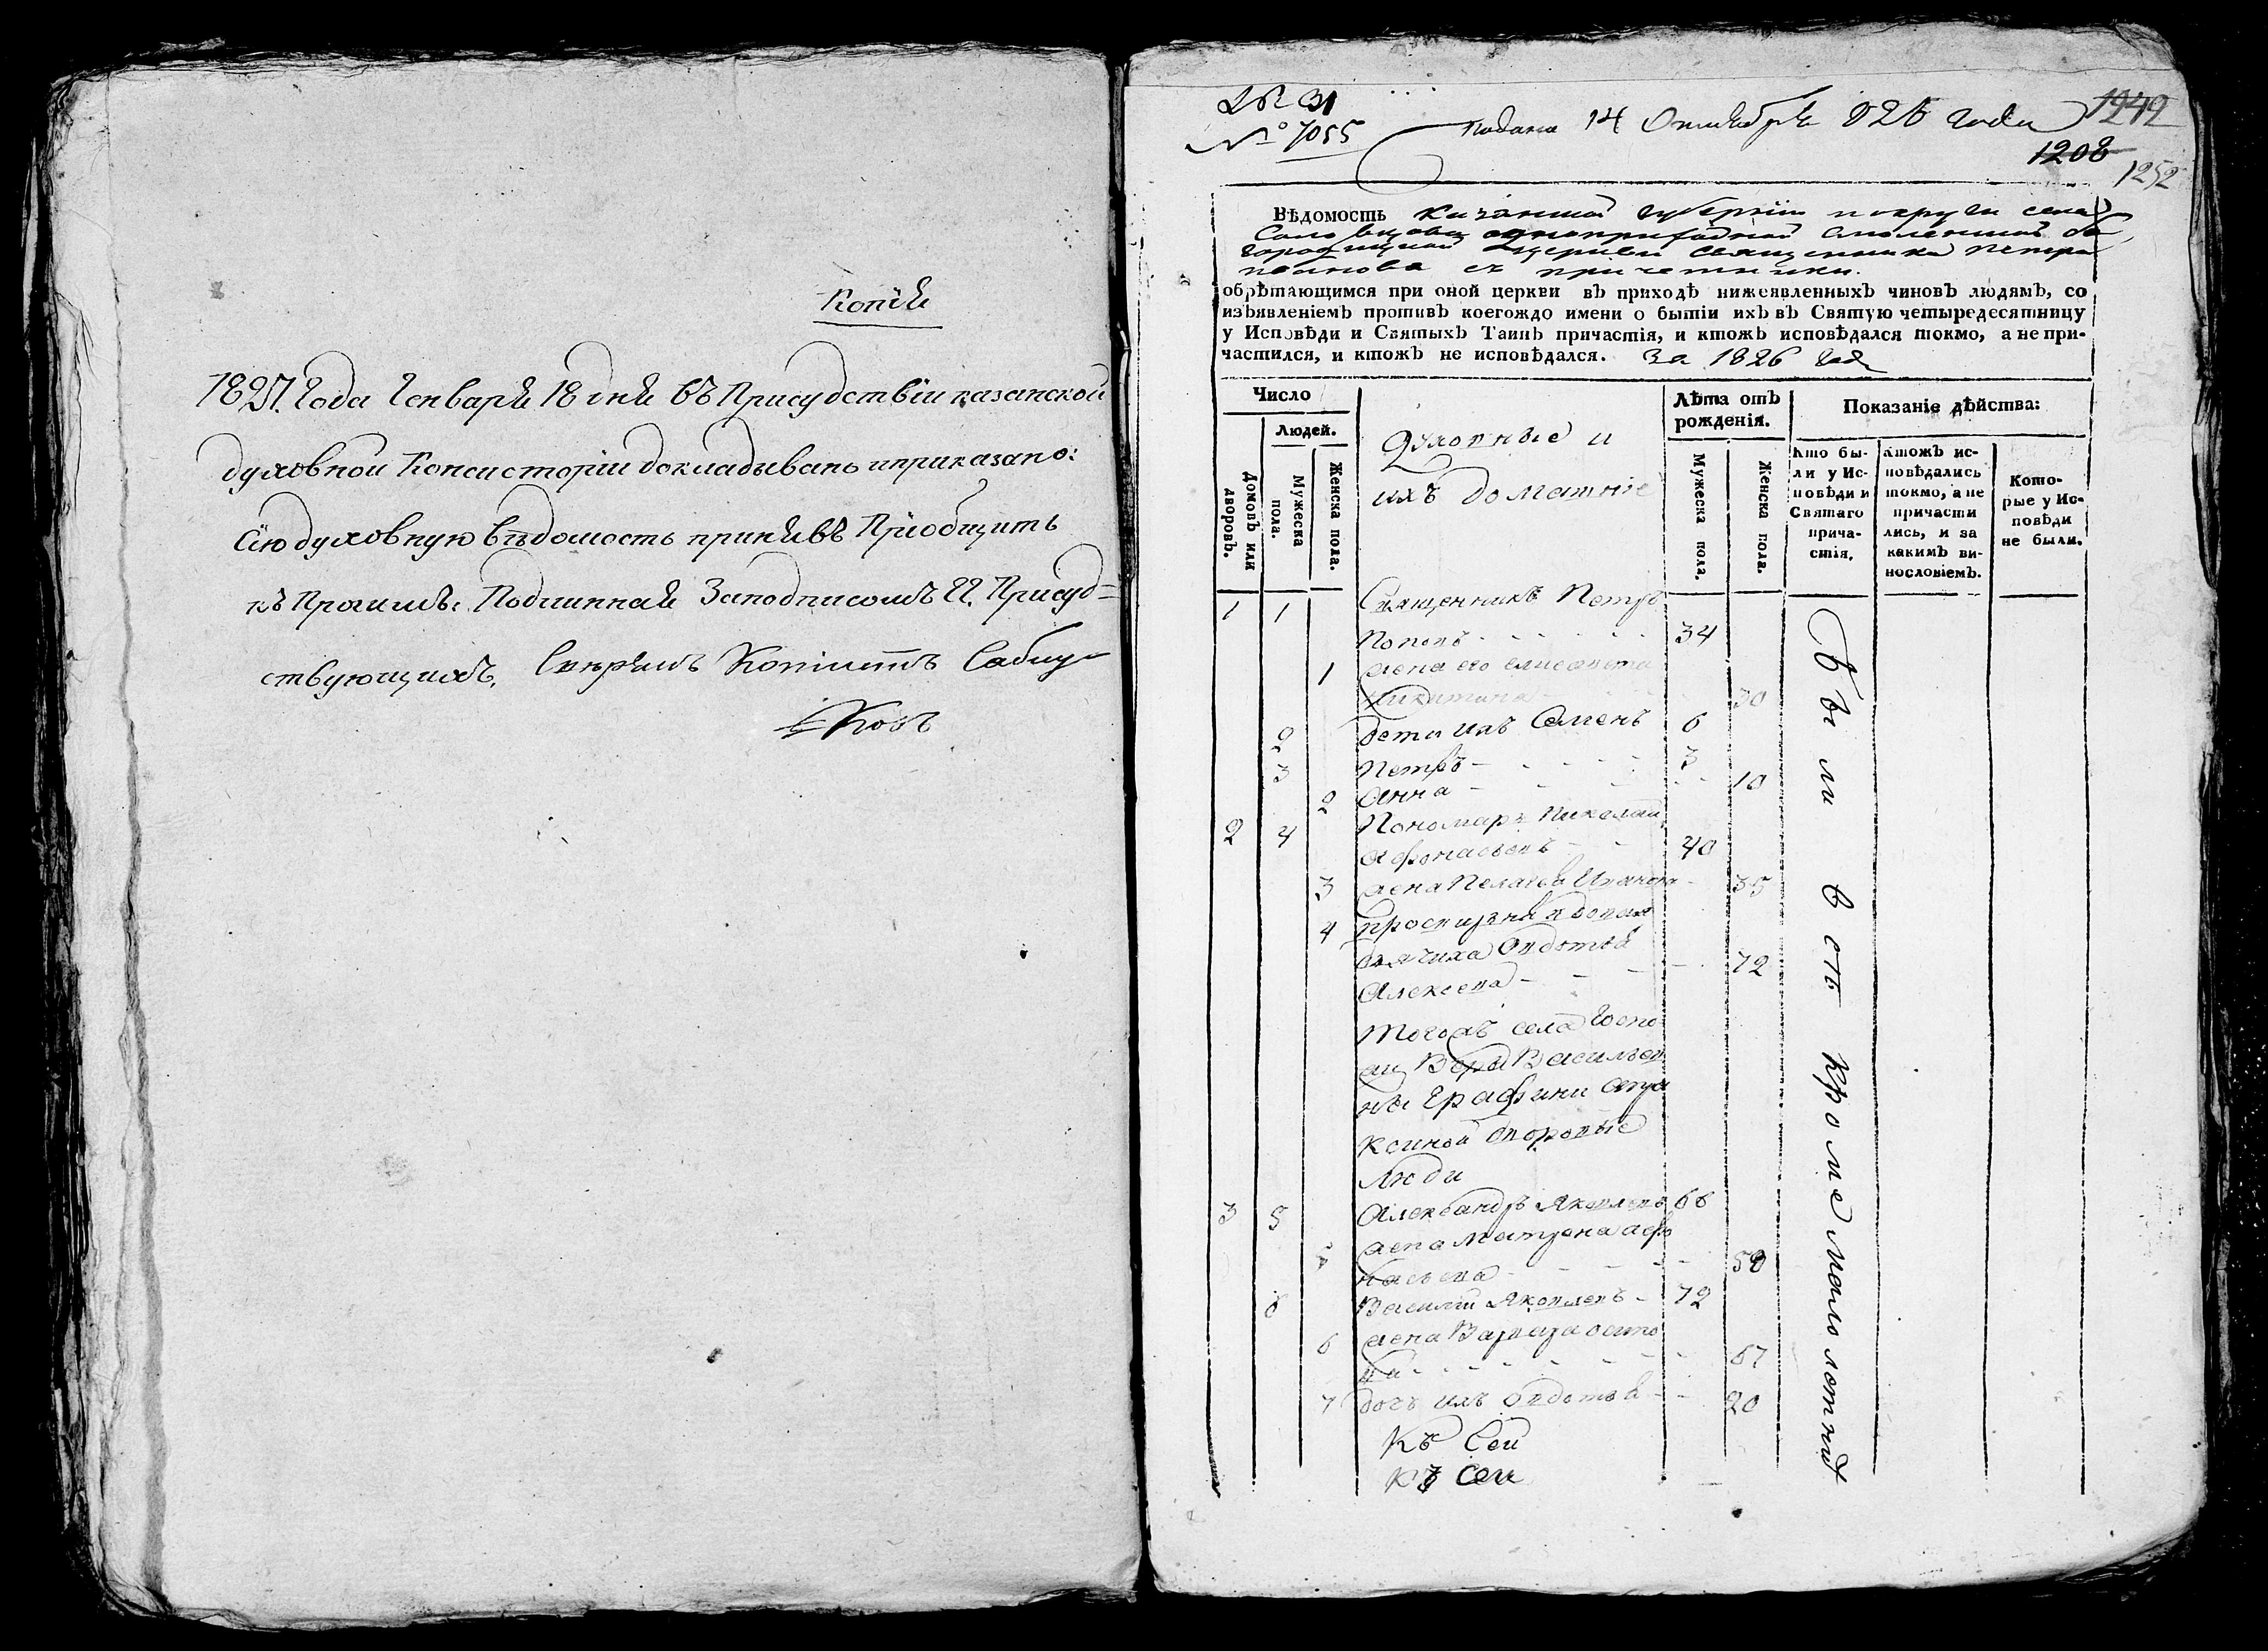 Копія
1827. Года Генваря 18 дня въ Присудствіи казанской
духовной Консисторіи докладывано и приказано:
Сію духовную вѣдомость принявъ Пріобщить
къ Прочимъ: Подлинная За подписомъ Гг. Присуд=
ствующихъ. Свѣрялъ Копіистъ
№ 31
№ 7055
Подана 14 Октября 826 года
1242
1208
1252
Вѣдомость Казанской губерніи и округи села
однопрнходной Смоленской Бо
городицкой церкви священника Петра
Попова съ причетники.
обрѣтающимся при оной церкви въ приходѣ нижеявленныхъ чиновъ людямъ, со
изъявленіемъ противъ коегождо имени о бытіи ихъ въ Святую четыредесятницу
у Исповѣди и Святыхъ Таинъ причастія, и ктожъ исповѣдался токмо, а не при-
частился, и ктожъ не исповѣдался. За 1826 год
Число
Людей.
Домовъ или дворовъ.
Мужеска пола.
Женска пола.
Духовные и
ихъ домашніе
Лѣта отъ
рожденія.
Мужеска пола.
Женска пола.
Показаніе дѣйства:
Кто бы-
ли у Ис-
повѣди и
Святаго
прича-
стія.
Ктожъ ис-
повѣдались
токмо, а не
причасти
лись, и за
какимъ ви-
нословіемъ.
Кото-
рые у Ис-
повѣди
не были.
1 1 Священникъ Петръ
Поповъ 34
1 жена его елисавета
Никитина 30
2 дети ихъ Семенъ 6
3 Петръ 3
2 Анна 10
2 4 Пономарь Николай
Афонасьевъ 40
3 жена Пелагея Иванова 35
4 просвирня вдовая
дьячиха Овдотья
Алексева 72
Тогожъ села Госпо
жи Вѣры Васильев
ны Графини Апра
ксиной дворовые
Люди
3 5 Александръ Яковлевъ 66
5 жена Матрона афо
насьева 58
6 Василий Яковлевъ 72
6 жена Варвара осипо
ва 67
7 дочь ихъ Овдотья 20
Къ Сей
Къ Сей
Были вси кроме малолетнихъ